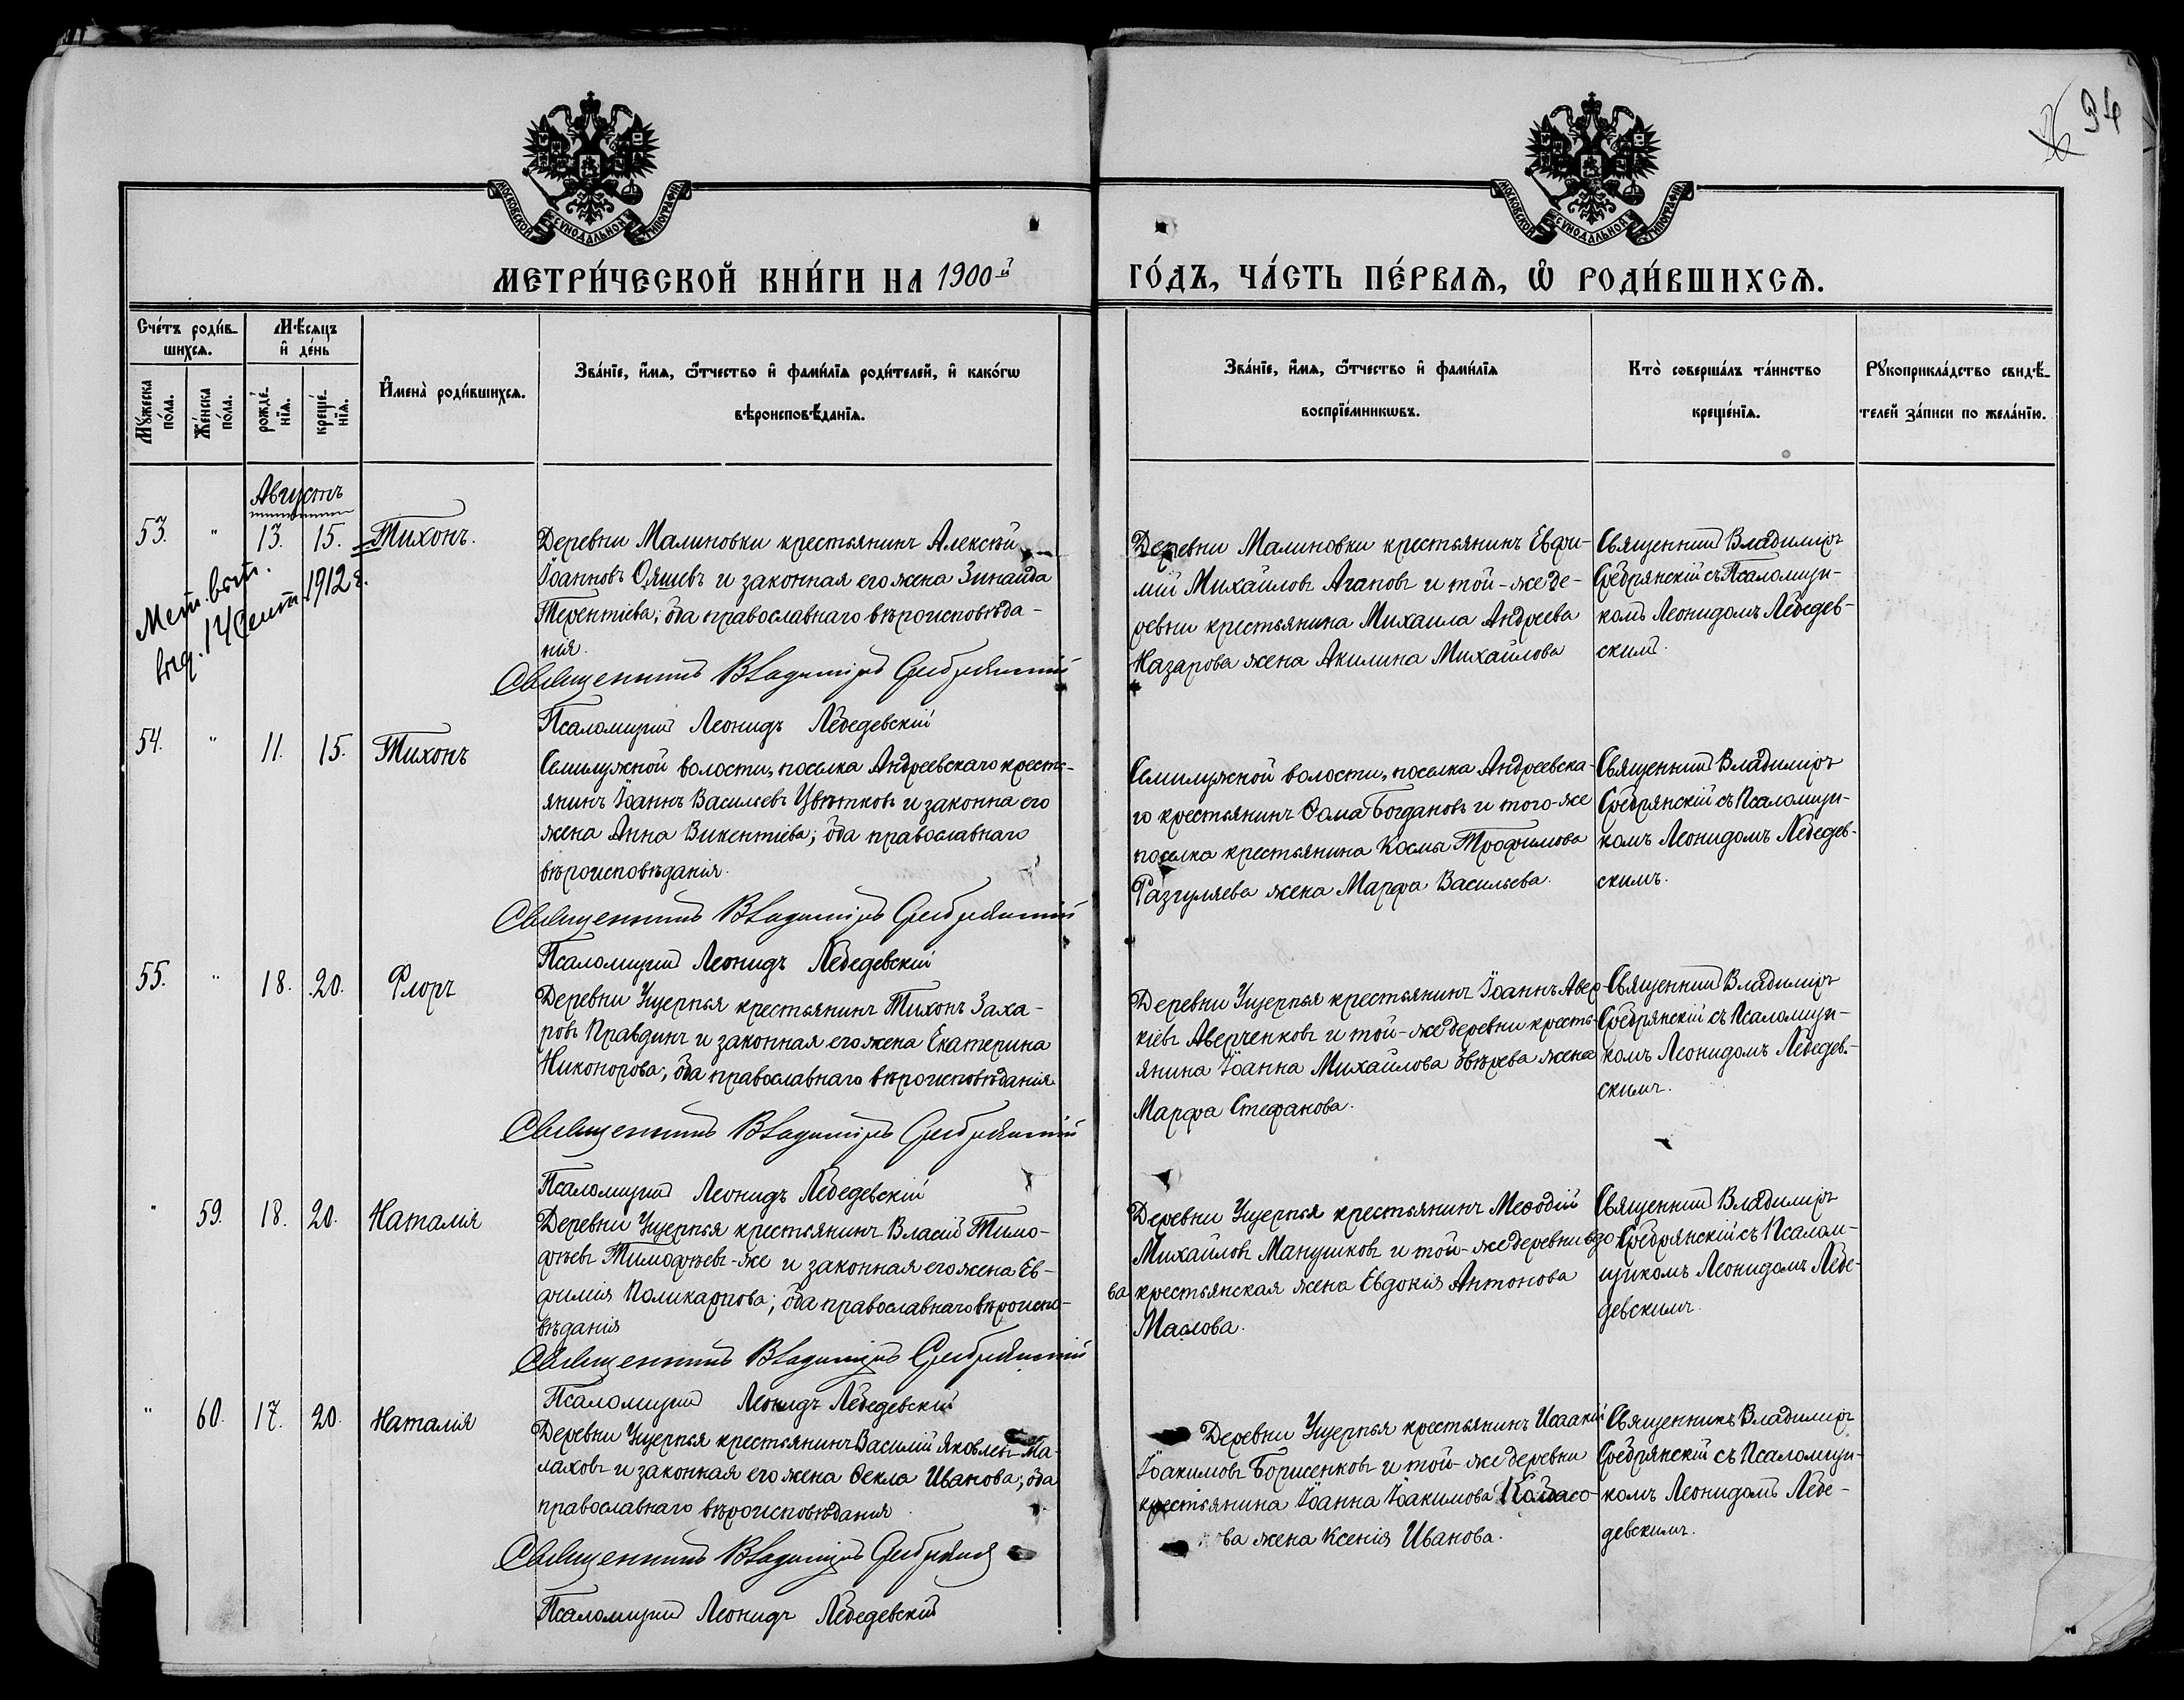 94
МОСКОВСКОЙ СУНОДАЛЬНОЙ ТИПОГРАФІИ
МОСКОВСКОЙ СУНОДАЛЬНОЙ ТИПОГРАФІИ
МЕТРИ́ЧЕСКОЙ КНИ́ГИ НА 1900-й ГО́ДЪ, ЧА́СТЬ ПЕ́РВАѦ, Ѽ РОДИ́ВШИХСѦ.
Сче́тъ роди́в-
шихсѧ.
Мѣ́сѧцъ
и҆ де́нь
Мꙋ́жеска
по́ла.
Же́нска
по́ла.
рожде́-
нїѧ.
креще́-
нїѧ.
И҆мена̀ роди́вшихсѧ.
Зва́нїе, и҆́мѧ, ѻ҆́тчество и҆ фами́лїѧ роди́телей, и҆ како́гѡ
вѣроисповѣ́данїѧ.
Зва́нїе, и҆́мѧ, ѻ҆́тчество и҆ фами́лїѧ
воспрїе́мникѡвъ.
Кто̀ соверша́лъ та́инство
креще́нїѧ.
Рꙋкоприкла́дство свидѣ́-
телей за́писи по жела́нїю.
Августъ
53. " 13. 15. Тихонъ.
Мет. вып.
выд. 14 Сент. 1912 г.
Деревни Малиновки крестьянинъ Алексѣй
Іоанновъ Ояшевъ и законная его жена Зинаида
Терентіева; оба православнаго вѣроисповѣда-
нія.
Священникъ Владиміръ Сребрянскій
Псаломщикъ Леонидъ Лебедевскій
Деревни Малиновки крестьянинъ Евфи-
мій Михайловъ Агаповъ и той-же де-
ревни крестьянина Михаила Андреева
Назарова жена Акилина Михайлова
Священникъ Владиміръ
Сребрянскій съ Псаломщи-
комъ Леонидомъ Лебедев-
скимъ.
54. " 11. 15. Тихонъ
Семилужной волости, поселка Андреевскаго кресть-
янинъ Іоаннъ Васильевъ Цвѣтковъ и законна его
жена Анна Викентіева; оба православнаго
вѣроисповѣданія.
Священникъ Владиміръ Сребрянскій
Псаломщикъ Леонидъ Лебедевскій
Семилужной волости, поселка Андреевска-
го крестьянинъ Ѳома Богдановъ и того-же
поселка крестьянина Космы Трофимова
Разгуляева жена Марфа Васильева.
Священникъ Владиміръ
Сребрянскій съ Псаломщи-
комъ Леонидомъ Лебедев-
скимъ.
55. " 18. 20. Флоръ
Деревни Ущерпья крестьянинъ Тихонъ Заха-
ровъ Правдинъ и законная его жена Екатерина
Никонорова; оба православнаго вѣроисповѣданія
Священникъ Владиміръ Сребрянскій
Псаломщикъ Леонидъ Лебедевскій
Деревни Ущерпья крестьянинъ Іоаннъ Авер-
кіевъ Аверченковъ и той-же деревни кресть-
янина Іоанна Михайлова Звѣрева жена
Марфа Стефанова.
Священникъ Владиміръ
Сребрянскій съ Псаломщи-
комъ Леонидомъ Лебедев-
скимъ.
" 59. 18. 20. Наталія
Деревни Ущерпья крестьянинъ Власій Тимо-
фѣевъ Тимофѣевъ-же и законная его жена Ев-
фимія Поликарпова; оба православнаго вѣроиспо-
вѣданія
Священникъ Владиміръ Сребрянскій
Псаломщикъ Леонидъ Лебедевскій
Деревни Ущерпья крестьянинъ Меѳодій
Михайловъ Манушковъ и той-же деревни вдо-
ва крестьянская жена Евдокія Антонова
Маслова.
Священникъ Владиміръ
Сребрянскій съ Псалом-
щикомъ Леонидомъ Лебе-
девскимъ.
" 60. 17. 20. Наталія
Деревни Ущерпья крестьянинъ Василій Яковлевъ Ма-
лаховъ и законная его жена Ѳекла Иванова; оба
православнаго вѣроисповѣданія.
Священникъ Владиміръ Сребрянскій
Псаломщикъ Леонидъ Лебедевскій
Деревни Ущерпья крестьянинъ Исаакій
Іоакимовъ Борисенковъ и той-же деревни
крестьянина Іоанна Іоакимова
ва жена Ксенія Иванова.
Священникъ Владиміръ
Сребрянскій съ Псаломщи-
комъ Леонидомъ Лебе-
девскимъ.